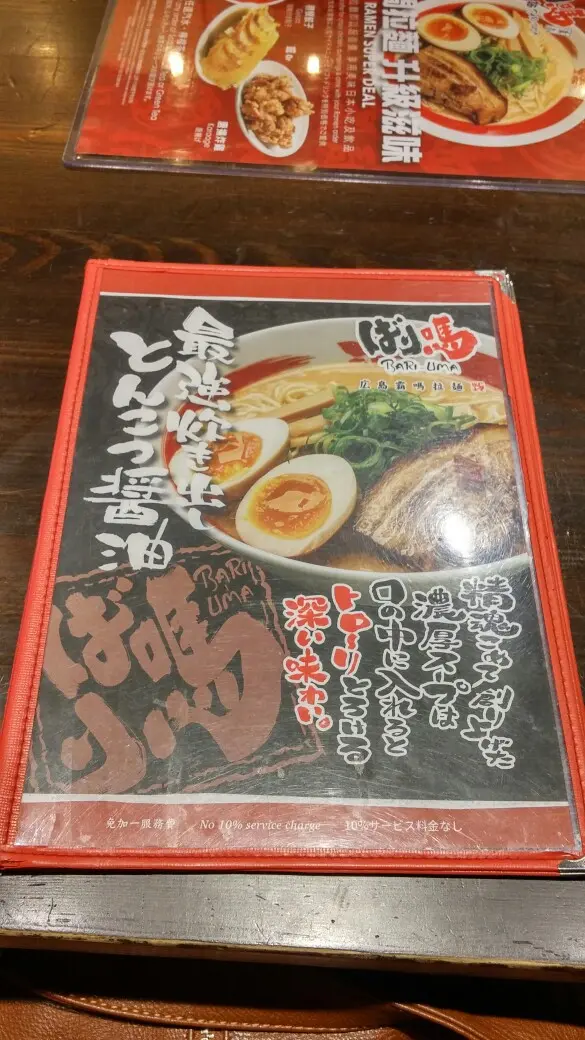 拉麵 升級滋味
RAMEN SUPER DEAL
點心
Gyoza
唐揚炸雞
Karaage
唐揚げ
ばり嗎
BARI-UMA
広島霸嗎拉麵
最強炊き出し
とんこつ醤油
ばり嗎
BARI
UMA
精魂こめて創り上げた
濃厚スープは
口の中に入れると
トロ〜りとろける
深い味わい。
免加一服務費 No 10% service charge 10%サービス料金なし